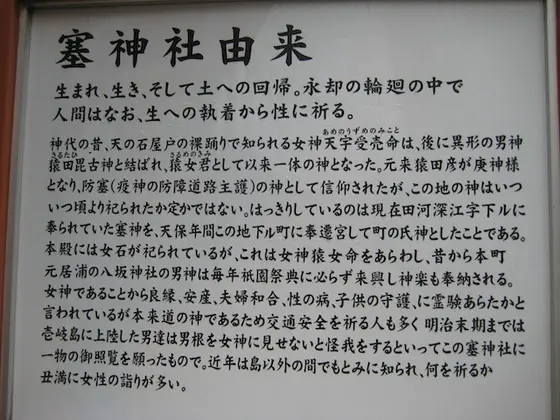 塞神社由来
生まれ、生き、そして土への回帰。永却の輪廻の中で
人間はなお、生への執着から性に祈る。
あめのうずめのみこと
神代の昔、天の石屋戸の裸踊りで知られる女神天宇受売命は、後に異形の男神
さるたひ さるめのきみ
猿田毘古神と結ばれ、猿女君として以来一体の神となった。元来猿田彦が庚神様
となり、防塞(疫神の防障道路主護)の神として信仰されたが、この地の神はいつ
いつ頃より祀られたか定かではない。はっきりしているのは現在田河深江字下ルに
奉られていた塞神を、天保年間この地下ル町に奉遷宮して町の氏神としたことである。
本殿には女石が祀られているが、これは女神猿女命をあらわし、昔から本町
元居浦の八坂神社の男神は毎年祇園祭典に必らず来興し神楽も奉納される。
女神であることから良縁、安産、夫婦和合、性の病、子供の守護、に霊験あらたかと
言われているが本来道の神であるため交通安全を祈る人も多く 明治末期までは
壱岐島に上陸した男達は男根を女神に見せないと怪我をするといってこの塞神社に
一物の御照覧を願ったもので。近年は島以外の間でもとみに知られ、何を祈るか
丑満に女性の詣りが多い。